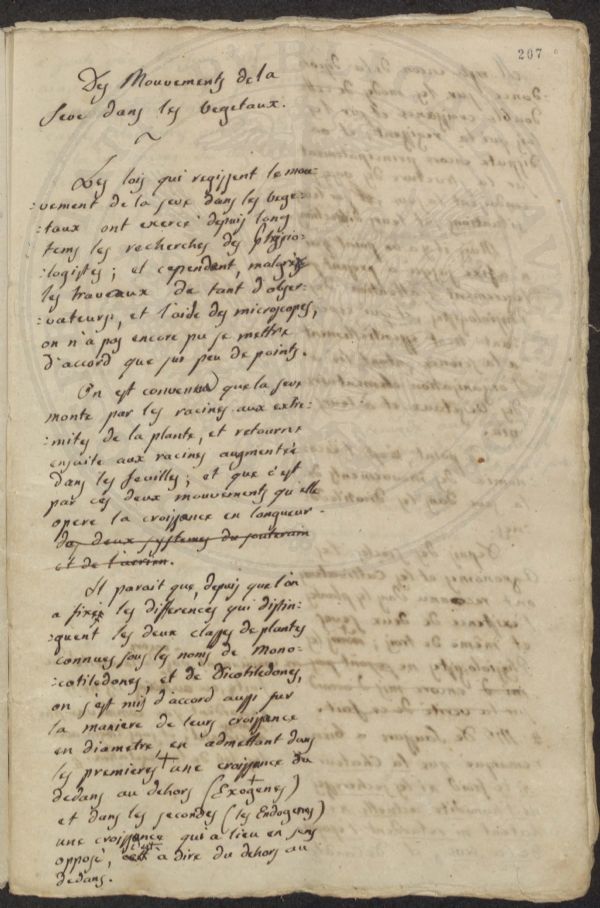 207
Des Mouvements de la
seve dans les vegetaux.
~
Les lois qui regissent le mou-
:vement de la seve dans les vege-
:taux ont exercé depuis long
tems les recherches des physio-
:logistes; et cependent, malgré
les traveaux de tant d'obser-
:vateurs, et l'aide des microscopes,
on n'a pas encore pu se mettre
d'accord que sur peu de points.
On est convenu que la seve
monte par les racines aux extre-
:mités de la plante, et retourne
ensuite aux racines augmentée
dans les feuilles; et que c'est
par ces deux mouvements qu'elle
opere la croissance en longueur
des deux systemes du souterain
et de l'aerien.
Il parait que, depuis que l'on
a fixé les differences qui distin-
:guent les deux classes de plantes
connues sous les noms de Mono-
:cotiledones, et de Dicotiledones,
on s'est mis d'accord aussi sur
la maniere de leurs croissance
en diametre, en admettant dans
les premieres + une croissance du
dedans au dehors (Exogenes)
et dans les secondes + (les Endogenes)
une croissance qui a lieu en sens
opposé, c'est a dire du dehors au
dedans.